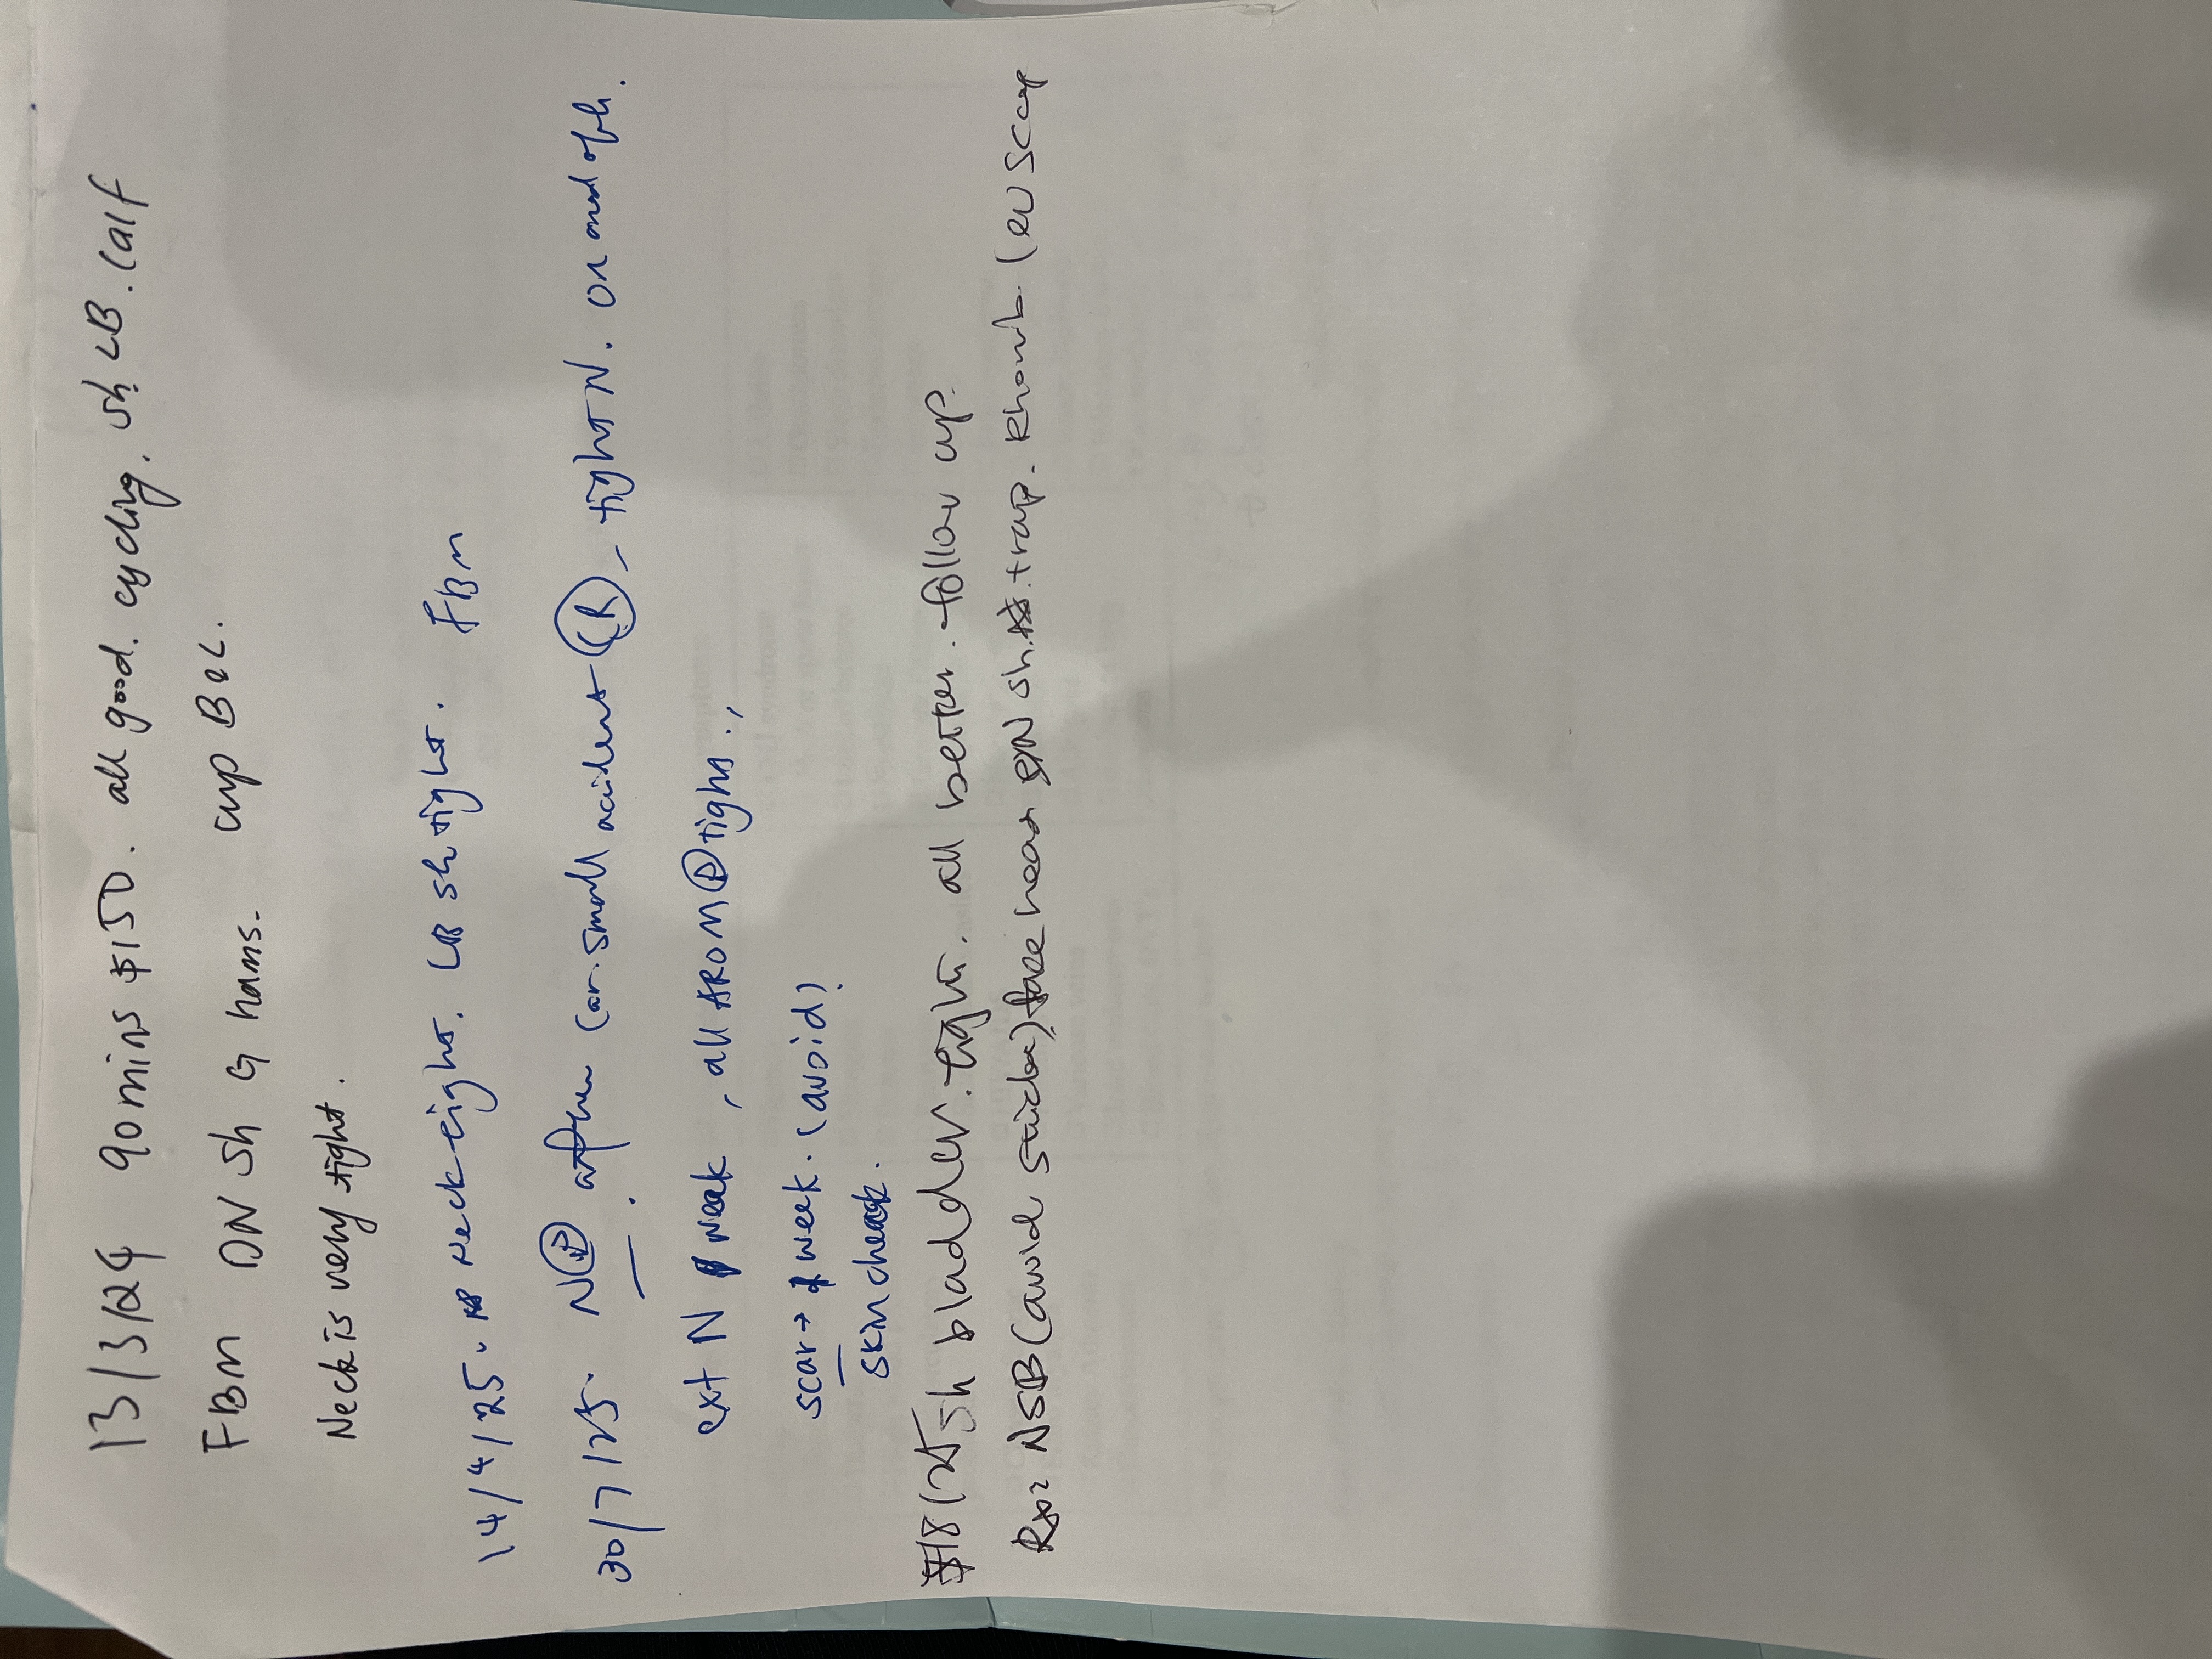 13/3/24 90mins $150. all good. cycling. sh LB. Calf
FBM DN sh G hams. cup BIL.
Neck is very tight.
14/4/25. Neck tight. LB sh tight. FBM
30/7/25. N(P) after car small accident (R) - tight N. on and off.
ext N weak, all AROM (P) tight.
scar → week. (avoid)
skin check.
/8/25 sh bladder tight. all better. follow up.
Rx: NSB (avoid) face head DN sh. trap. Rhomb. lev scap